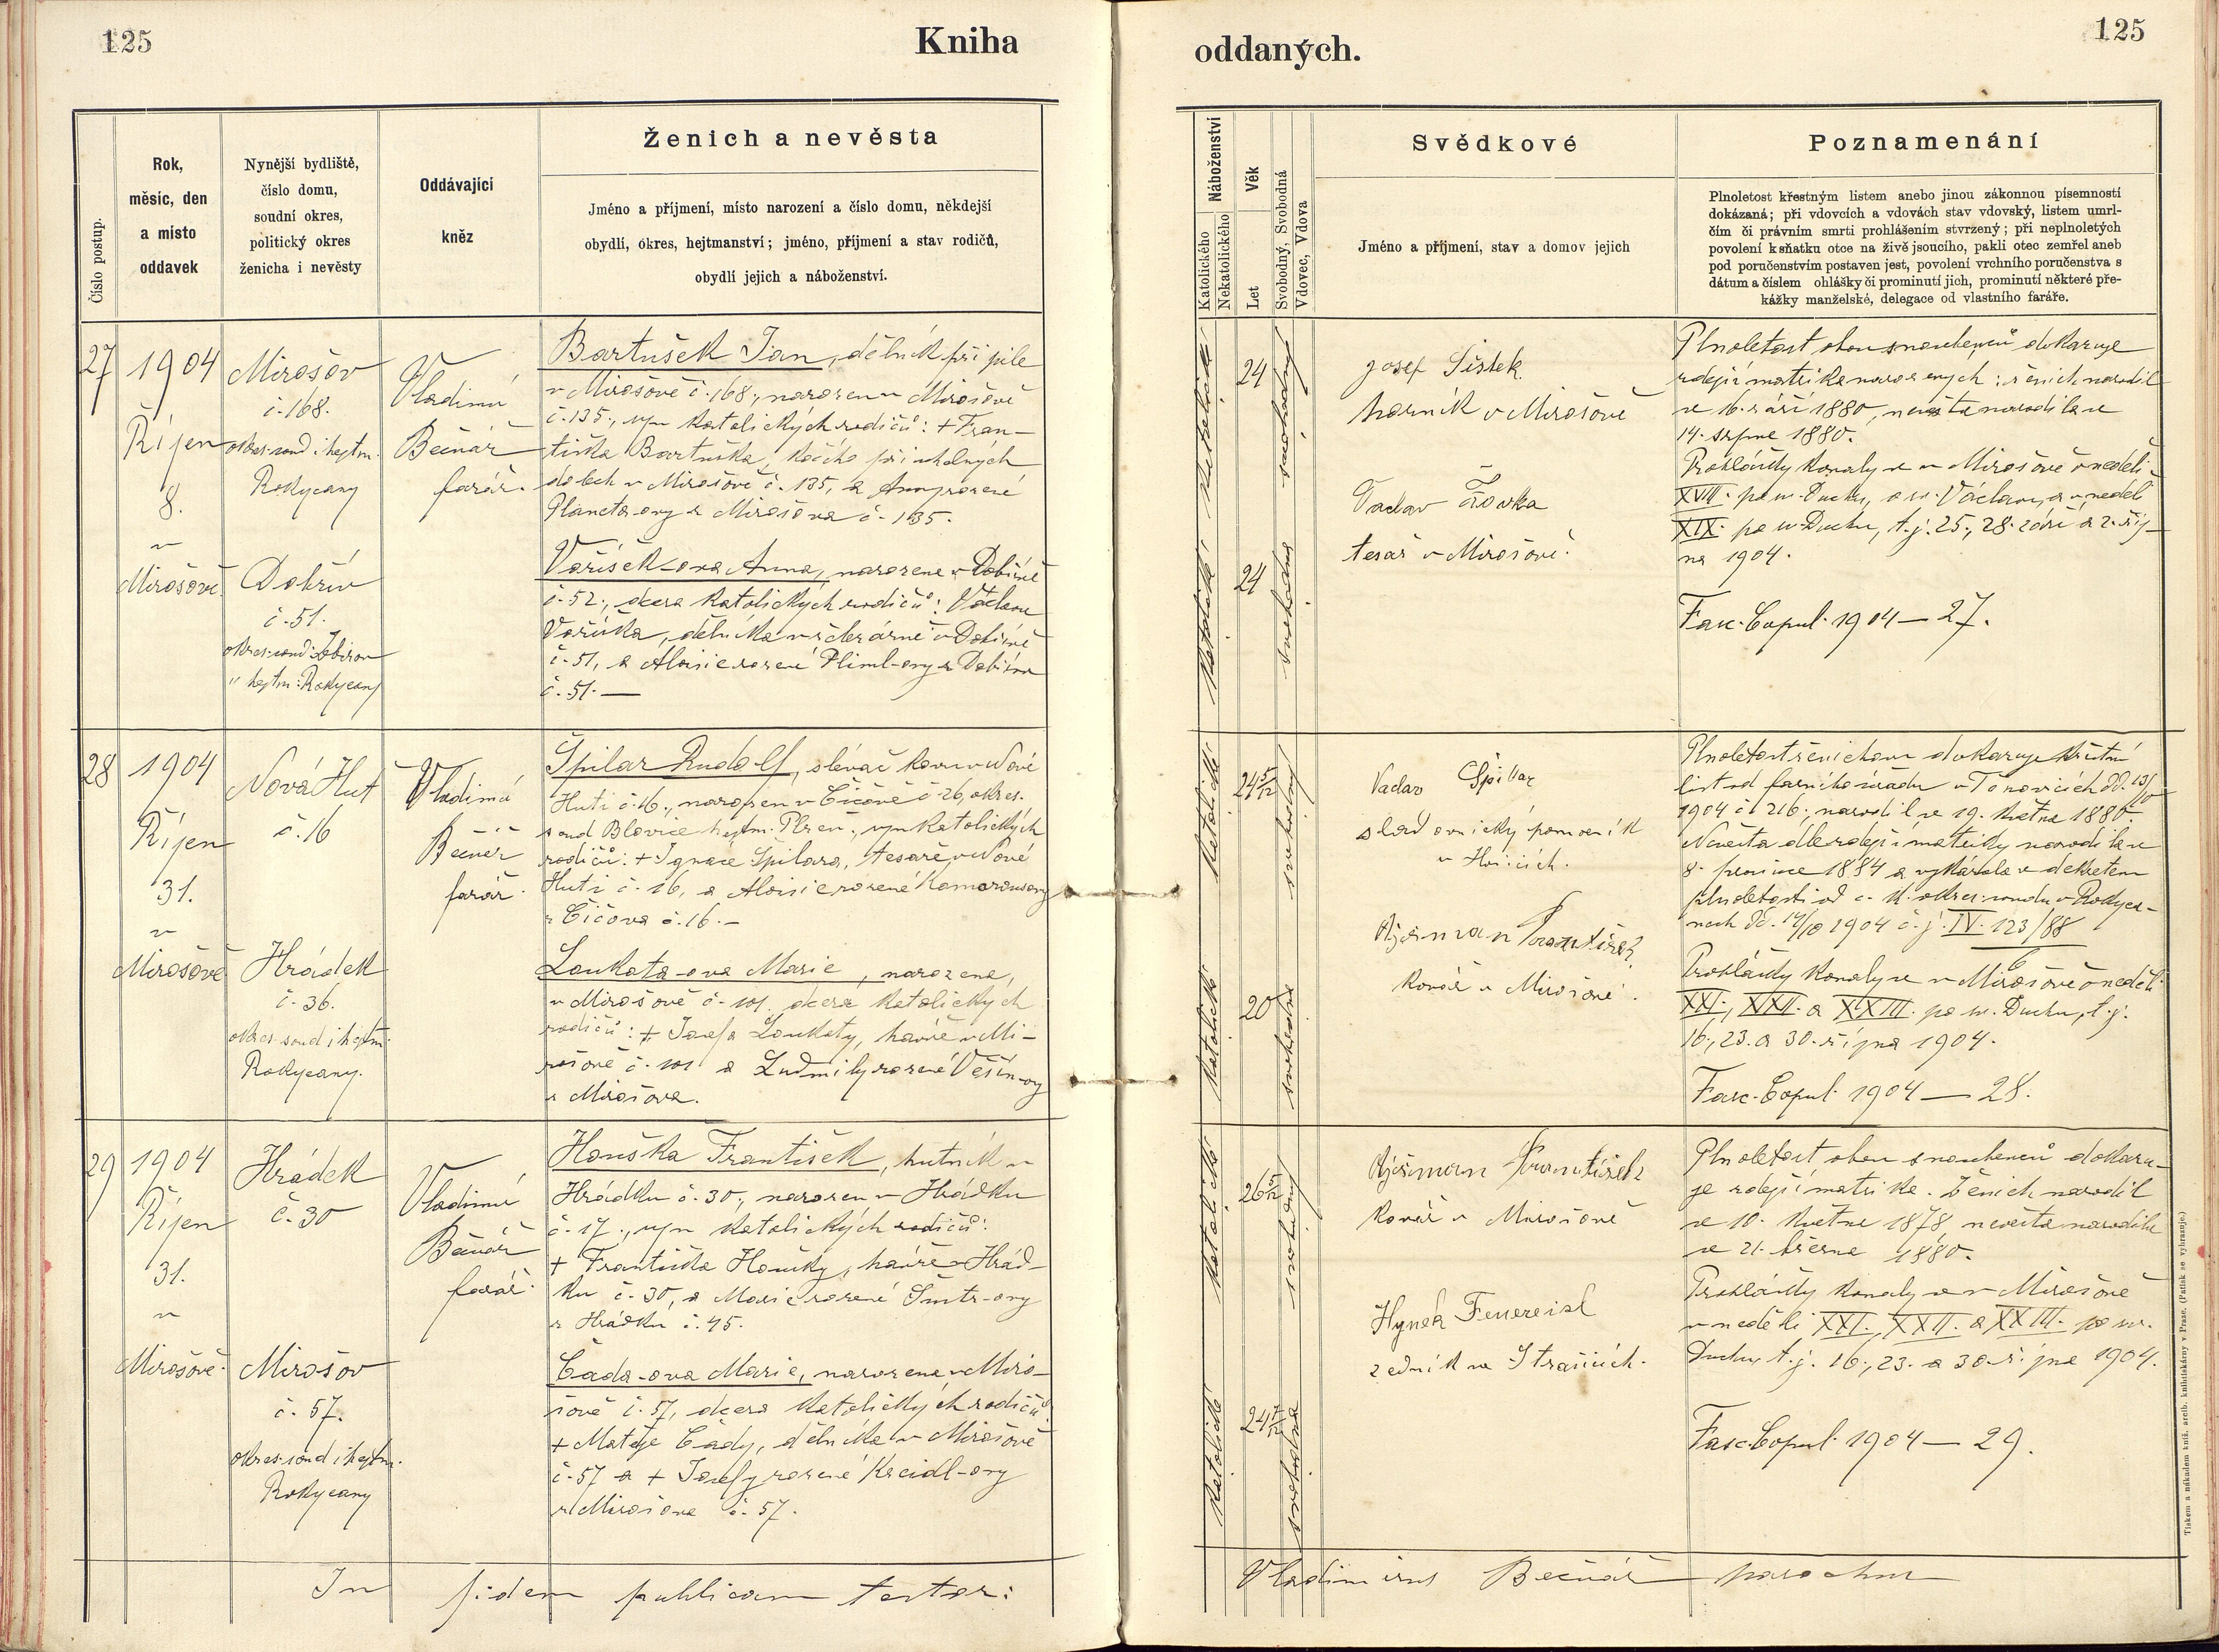 125
Kniha
Číslo postup.
Rok,
měsíc, den
a místo
oddavek
Nynější bydliště,
číslo domu,
soudní okres,
politický okres
ženicha i nevěsty
Oddávající
kněz
Ženich a nevěsta
Jméno a příjmení, místo narození a číslo domu, někdejší
obydlí, okres, hejtmanství; jméno, příjmení a stav rodičů,
obydlí jejich a náboženství.
27
1904
Říjen
8.
v
Mirošově
Mirošov
č. 168.
okres. soud i hejtm.
Rokycany
Dobřív
č. 51.
okres. soud: Zbirov
" hejtm: Rokycany
Vladimír
Bečvář
farář.
Bartušek Jan, dělník při pile
v Mirošově č. 168., narozen v Mirošově
č. 135., syn katolických rodičů: + Fran-
tiška Bartuška, kočího při uhelných
dolech v Mirošově č. 135, a Anny rozené
Planeta-ovy z Mirošova č. 135.
Voříšek-ova Anna, narozena v Dobřívě
č. 52., dcera katolických rodičů: Václava
Voříška, dělníka v železárně v Dobřívě
č. 51, a Aloisie rozené Pliml-ovy z Dobříva
č. 51. —
28
1904
Říjen
31.
v
Mirošově
Nová Huť
č. 16
Hrádek
č. 36.
okres. soud i hejtm.
Rokycany.
Vladimír
Bečvář
farář.
Špilar Rudolf, slévač kovu v Nové
Huti č. 16., narozen v Čičově č. 26, okres.
soud Blovice hejtm. Plzeň, syn katolických
rodičů: + Ignáce Špilara, tesaře v Nové
Huti č. 16, a Aloisie rozené Kamarousovy
z Čičova č. 16. –
Loukota-ova Marie, narozena,
v Mirošově č. 101. dcera katolických
rodičů: + Josefa Loukoty, havíře v Mi-
rošově č. 101 a Ludmily rozené Věšín-ovy
z Mirošova.
29
1904
Říjen
31.
v
Mirošově.
Hrádek
č. 30
Mirošov
č. 57.
okres. soud i hejtm.
Rokycany
Vladimír
Bečvář
farář.
Houška František, hutník v
Hrádku č. 30., narozen v Hrádku
č. 17., syn katolických rodičů:
+ Františka Houšky, havíře v Hrád-
ku č. 30, a Marie rozené Šmtr-ovy
z Hrádku č. 45.
Čada-ova Marie, narozena v Miro-
šově č. 57, dcera katolických rodičů
+ Matěje Čady, dělníka v Mirošově
č. 57 a + Josefy rozené Kreidl-ovy
z Mirošova č. 57.
In fidem publicam testor:
oddaných.
125
Náboženství
Katolického
Nekatolického
Věk
Let
Svobodný, Svobodná
Vdovec, Vdova
Svědkové
Jméno a příjmení, stav a domov jejich
Poznamenání
Plnoletost křestným listem anebo jinou zákonnou písemností
dokázaná; při vdovcích a vdovách stav vdovský, listem umrl-
čím či právním smrti prohlášením stvrzený; při neplnoletých
povolení k sňatku otce na živě jsoucího, pakli otec zemřel aneb
pod poručenstvím postaven jest, povolení vrchního poručenstva s
dátum a číslem ohlášky či prominutí jich, prominutí některé pře-
kážky manželské, delegace od vlastního faráře.
katolické
24
svobodný
katolické
24
svobodná
Josef Šístek
horník v Mirošově
Václav Žovka
tesař v Mirošově.
Plnoletost obou snoubenců dokazuje
zdejší matrika narozených: ženich narodil
se 16. září 1880, nevěsta narodila se
14. srpna 1880.
Prohlášky konaly se v Mirošově v neděli
XVII. po sv. Duchu, o sv. Václavu, a v neděli
XIX. po sv. Duchu, t.j. 25., 28. září a 2. říj-
na 1904.
Fasc. Copul. 1904 — 27.
katolické
24 5/12
svobodný
katolické
20
svobodná
Václav Špillar
sladovnický pomocník
v Hořicích.
Hyšman František
kovář v Mirošově.
Plnoletost ženichovu dokazuje křestní
list od farního úřadu v Tenovicích dd. 13/
1904 č. 216; narodil se 19. května 1880.
Nevěsta dle zdejší matriky narodila se
8. prosince 1884 a vykázala se dekretem
plnoletosti od c. k. okres. soudu v Rokyca-
nech dd. 14/10 1904 č. j. IV. 123/88
6
Prohlášky konaly se v Mirošově v neděli
XXI., XXII. a XXIII. po sv. Duchu, t.j.
16., 23. a 30. října 1904.
Fasc. Copul. 1904 — 28.
katolické
26 5/12
svobodný
katolické
24 7/12
svobodná
Hyšman František
kovář v Mirošově
Hynek Feuereisl
zedník ve Strašicích.
Plnoletost obou snoubenců dokazu-
je zdejší matrika. Ženich narodil
se 10. května 1878 nevěsta narodila
se 21. března 1880.
Prohlášky konaly se v Mirošově
v neděli XXI., XXII. a XXIII. po sv.
Duchu, t.j. 16., 23. a 30. října 1904.
Fasc. Copul. 1904 — 29.
Vladimirus Bečvář parochus
Tiskem a nákladem kníž. arcib. knihtiskárny v Praze. (Patisk se vyhrazuje.)